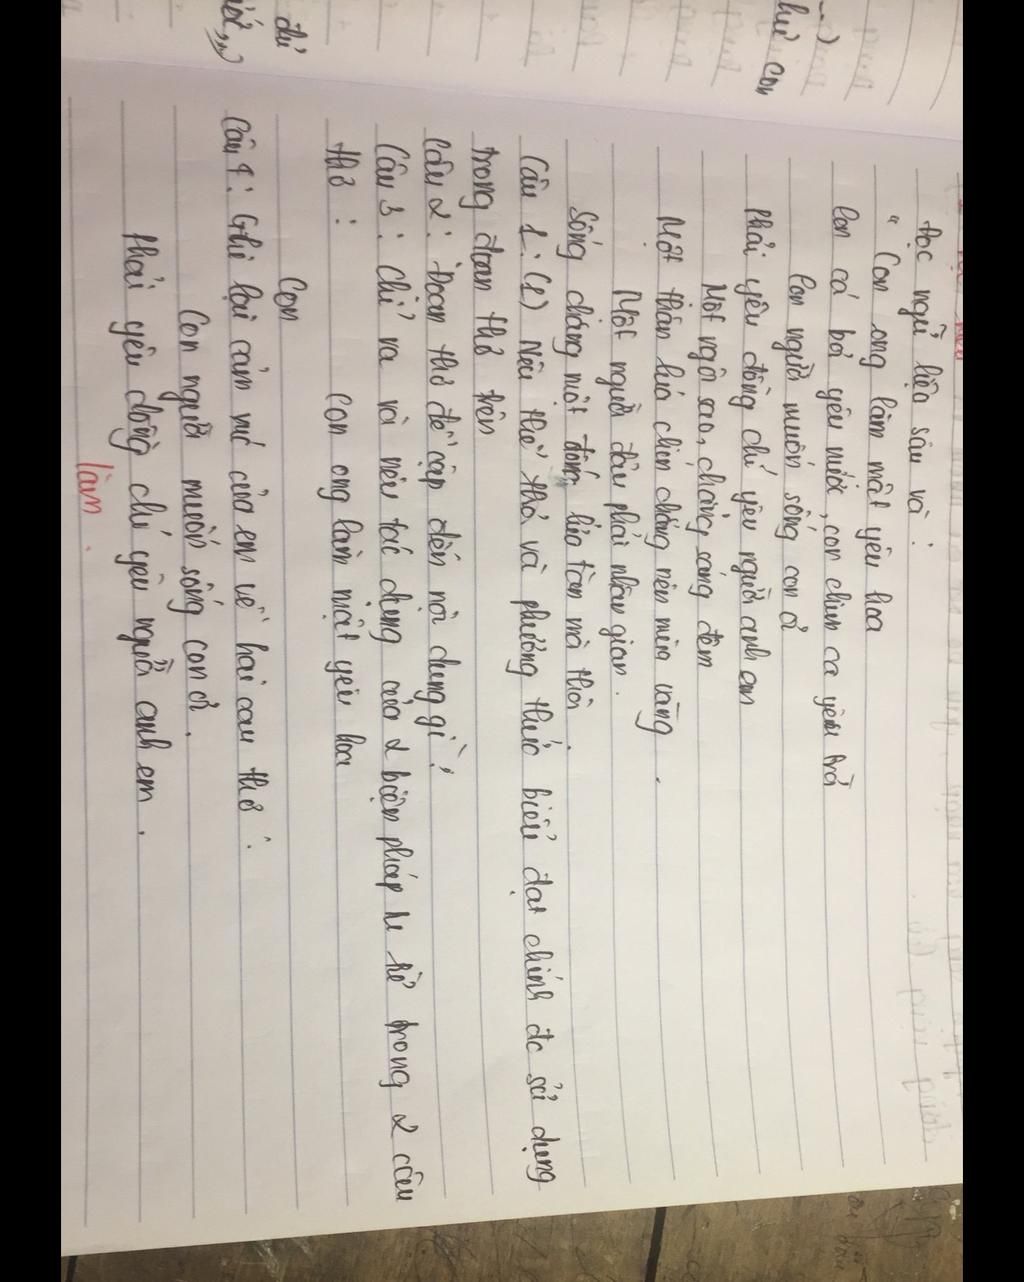 Đọc ngữ liệu sau và :
" Con ong làm mật yêu hoa
Con cá bơi yêu nước, con chim ca yêu trời
Con người muốn sống con ơi
Phải yêu đồng chí yêu người anh em
Một ngôi sao, chẳng sáng đêm
Một thân lúa chín chẳng nên mùa vàng.
Một người đâu phải nhân gian.
Sống chăng một đốm lửa tàn mà thôi.
Câu 1: (1) Nêu thể thơ và phương thức biểu đạt chính đc sử dụng
trong đoạn thơ trên
Câu 2: Đoạn thơ đề cập đến nôi dung gì?
Câu 3: chỉ ra và nêu tác dụng của 2 biện pháp tu từ trong 2 câu
thơ : Con ong làm mật yêu hoa
Con
Câu 4: Ghi lại cảm xúc của em về hai câu thơ :
Con người muốn sống con ơi.
Phải yêu đồng chí yêu người anh em.
làm.